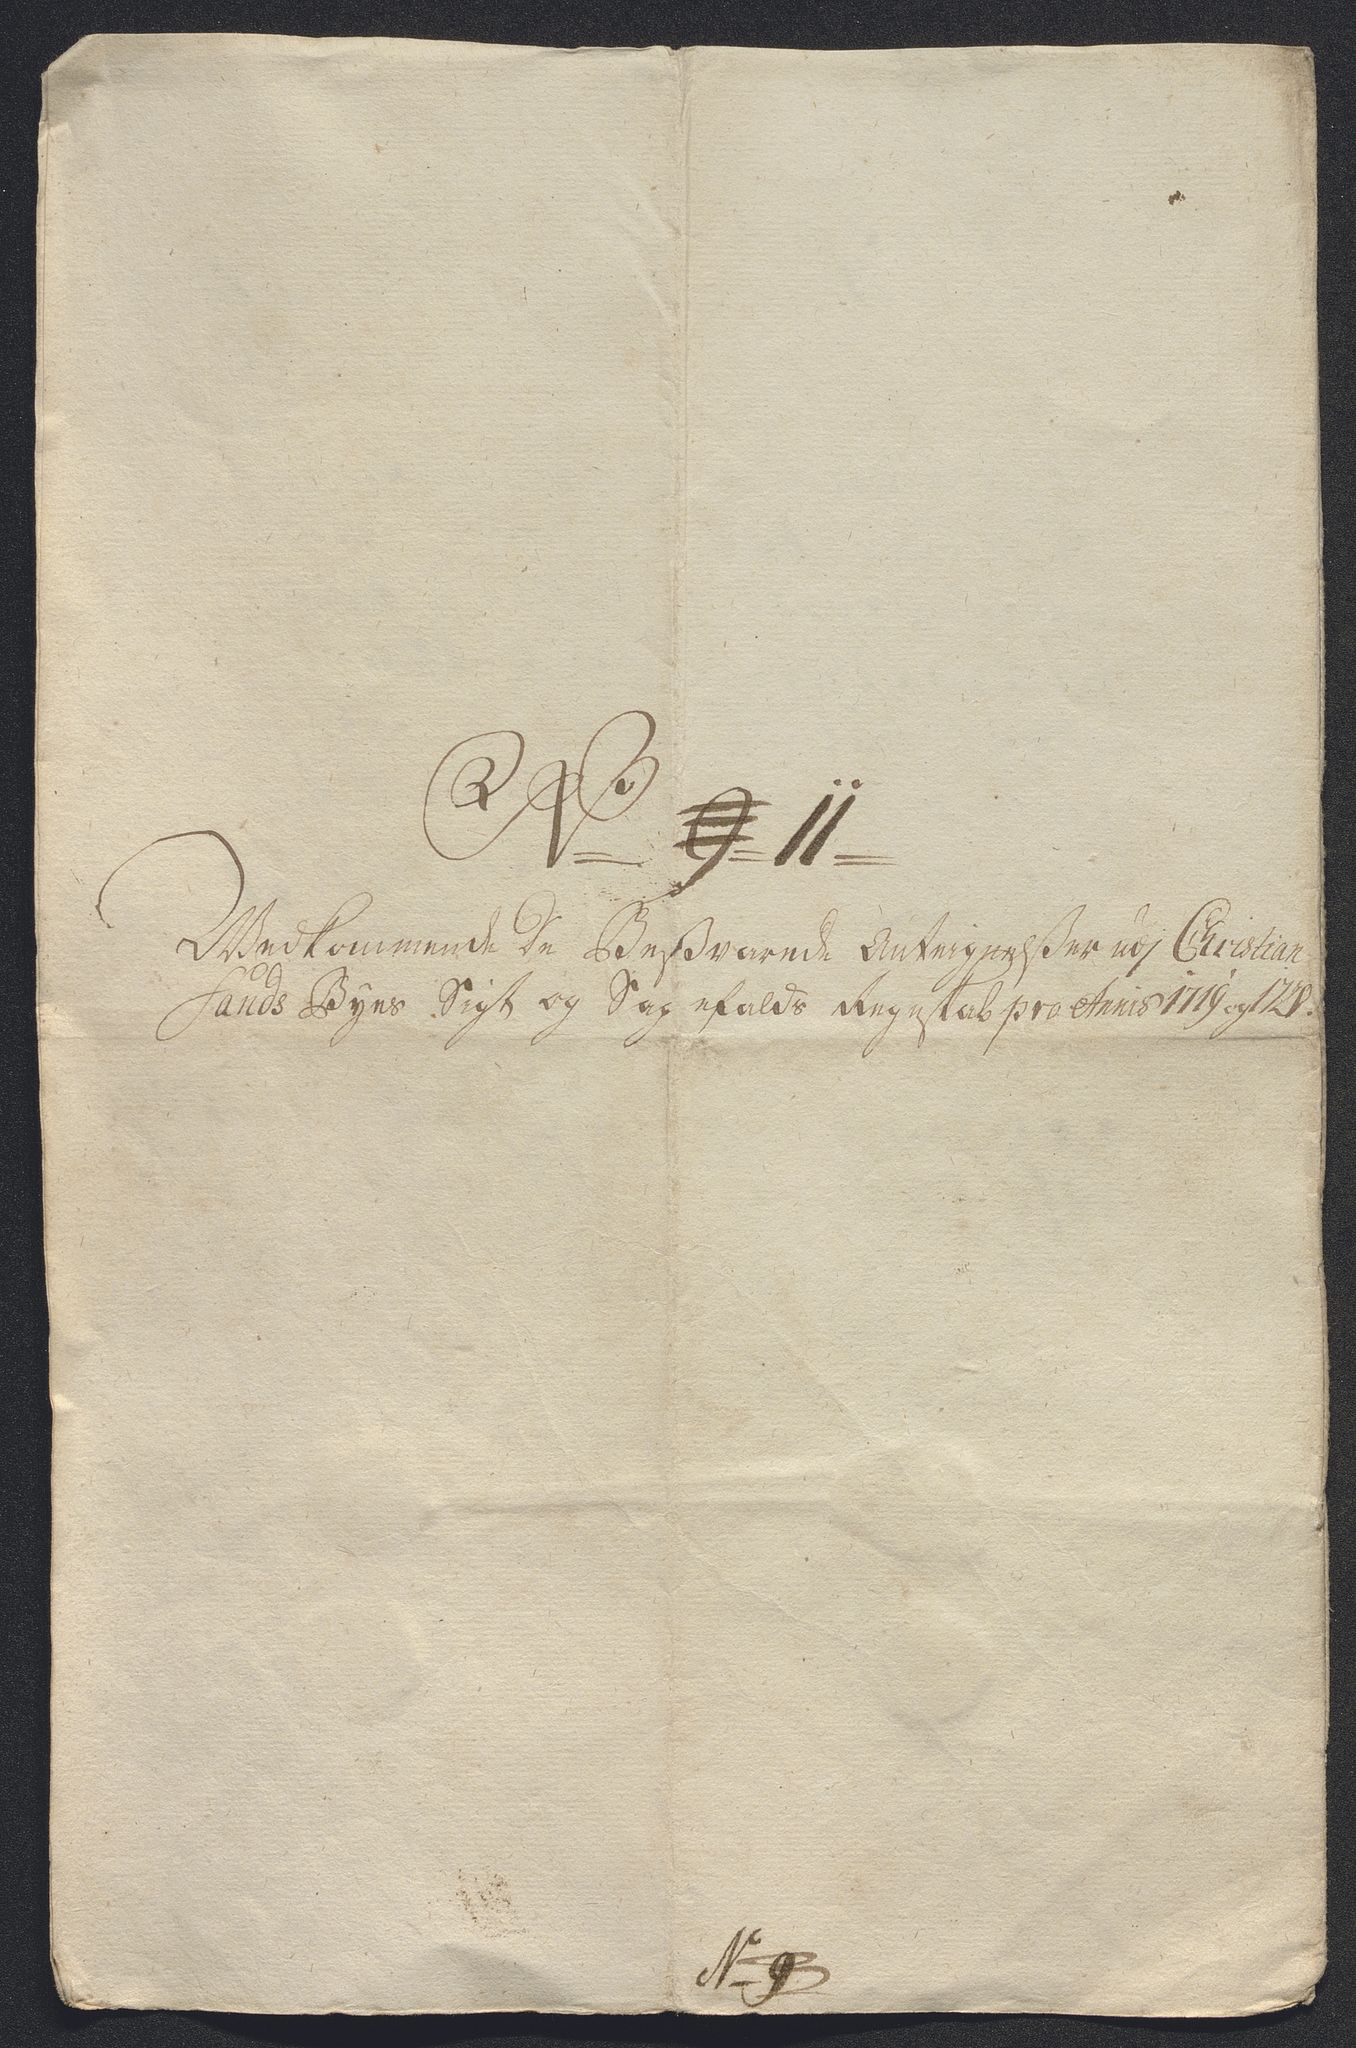 No 9 11
Wedkommende De Besswarede Anteignelsser udj Christian
sands Byes Sigt og Sagefalds Regnskab pro Annis 1719 og 1720.
No 9